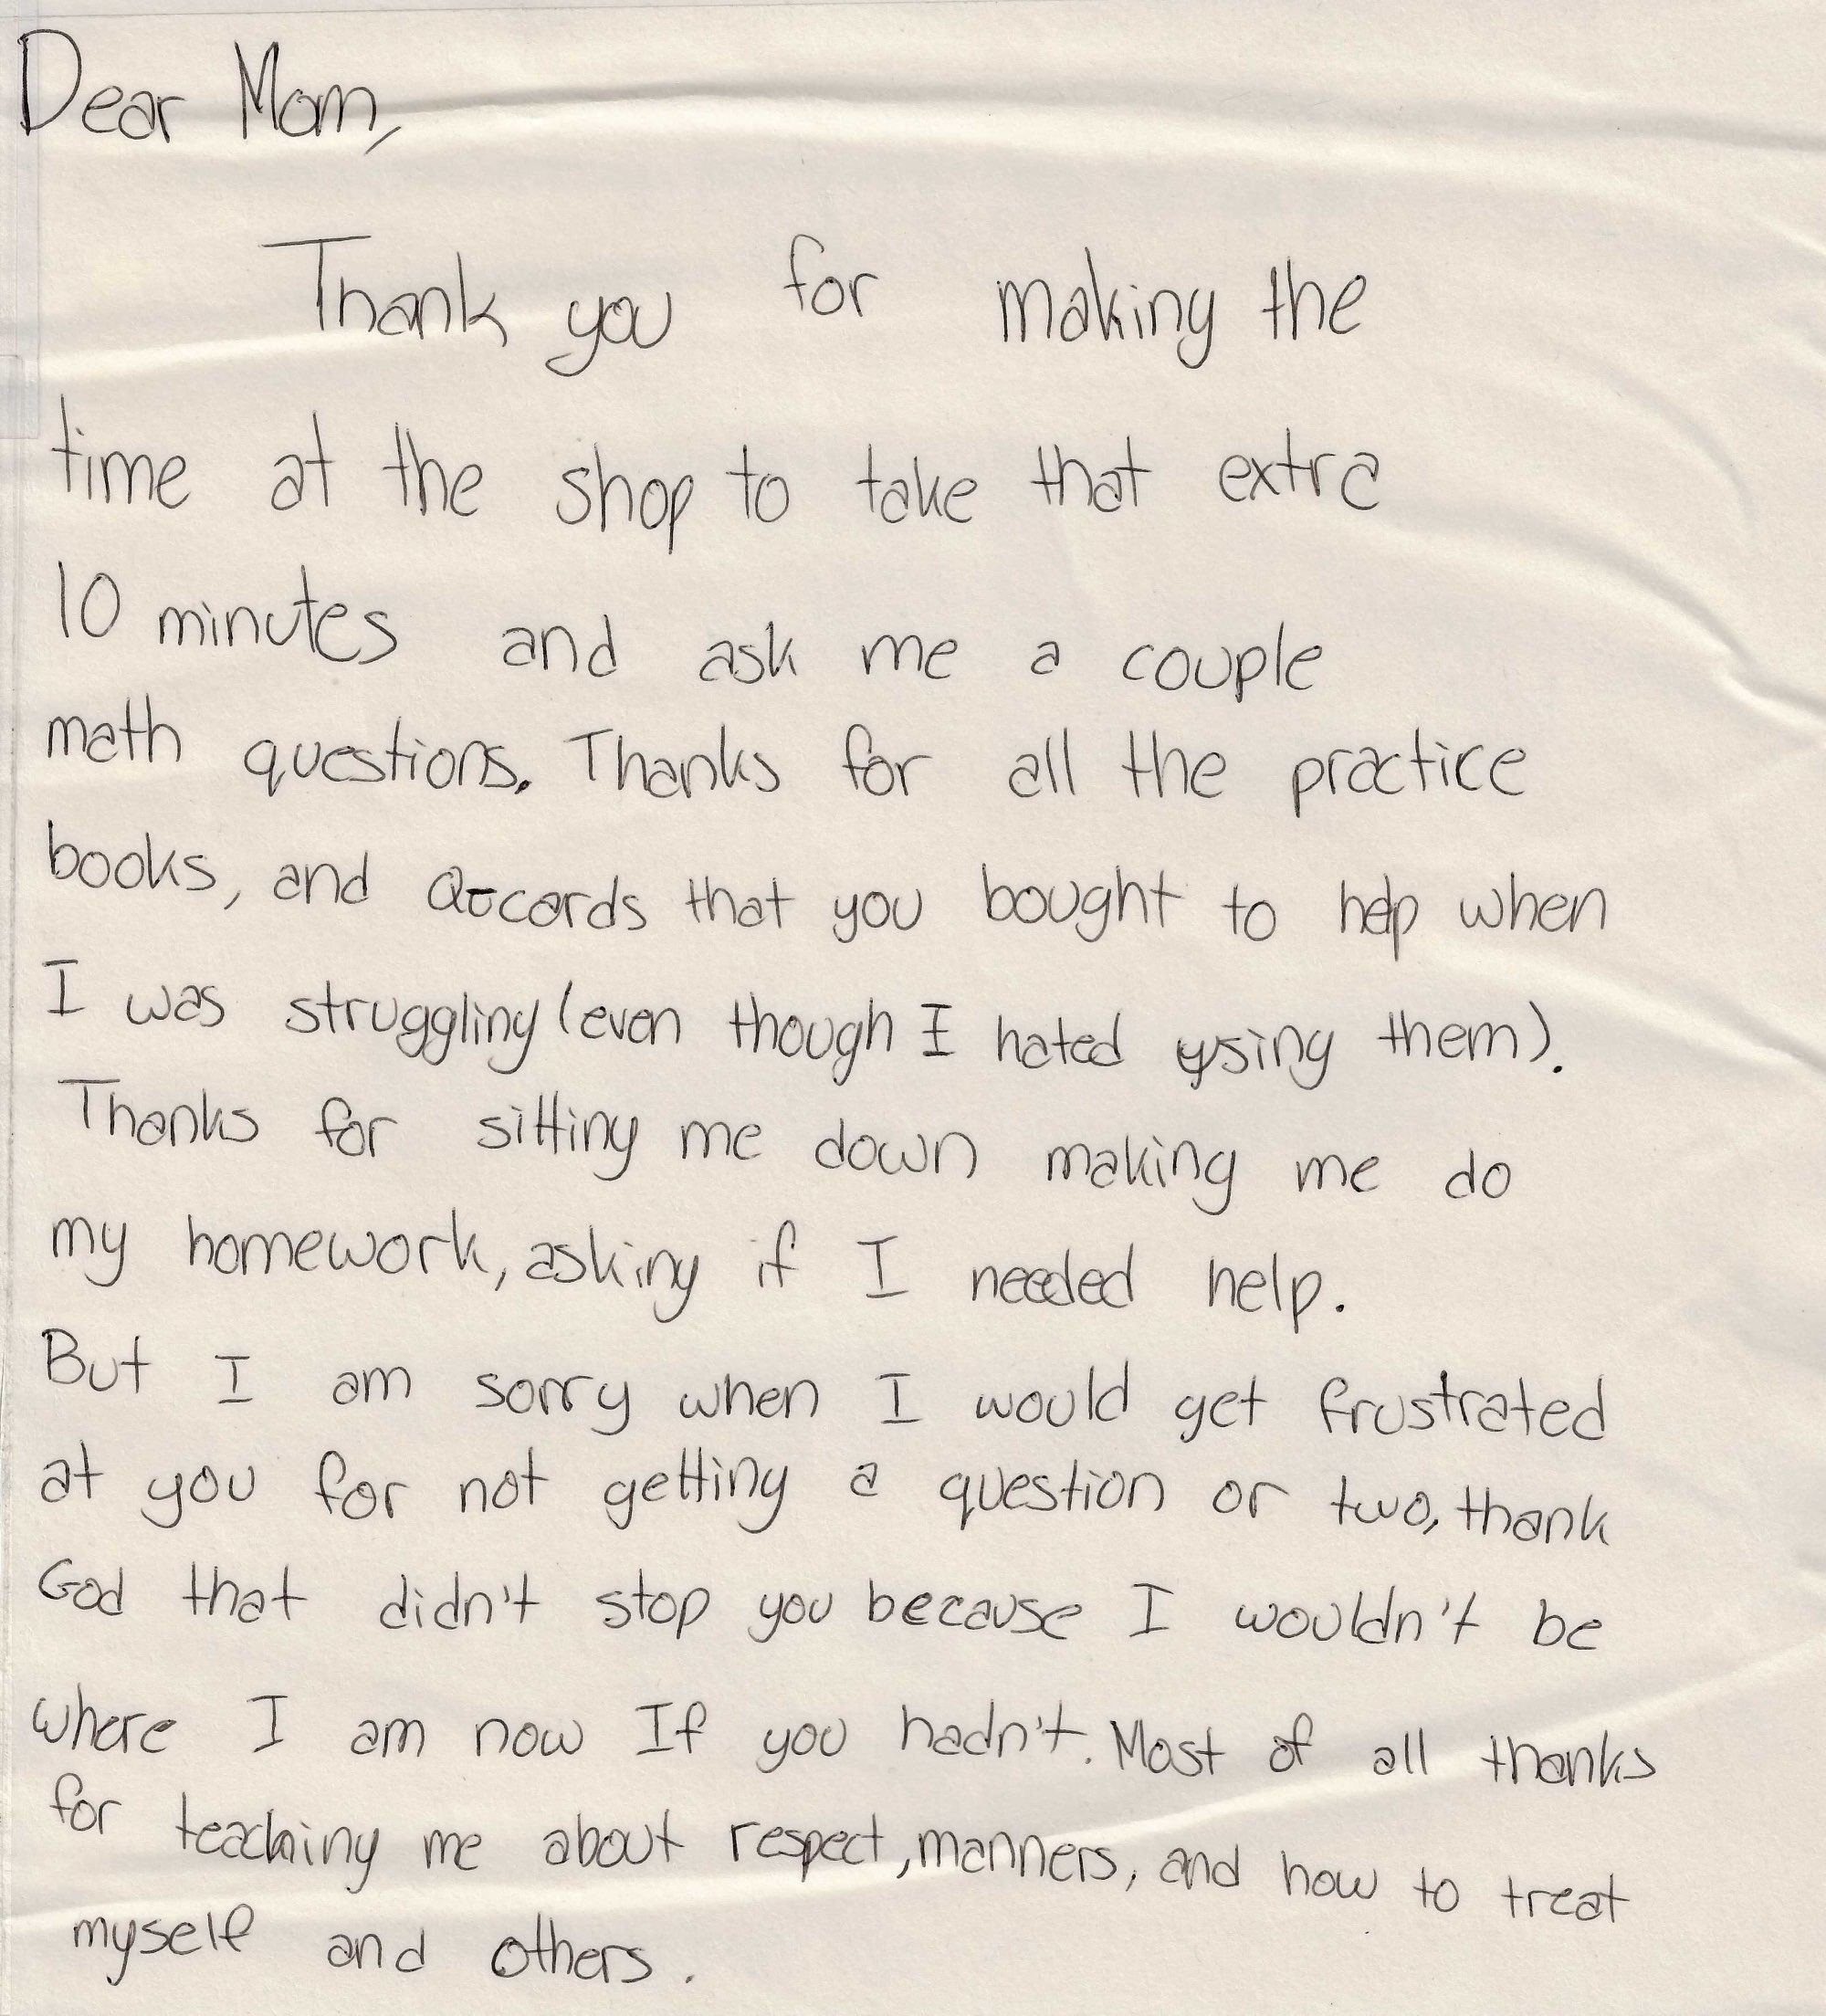 Dear Mom,
Thank you for making the
time at the shop to take that extra
10 minutes and ask me a couple
math questions. Thanks for all the practice
books, and Q-cards that you bought to help when
I was struggling (even though I hated using them).
Thanks for sitting me down making me do
my homework, asking if I needed help.
But I am sorry when I would get frustrated
at you for not getting a question or two, thank
God that didn't stop you because I wouldn't be
where I am now If you hadn't. Most of all thanks
for teaching me about respect, manners, and how to treat
myself and others.